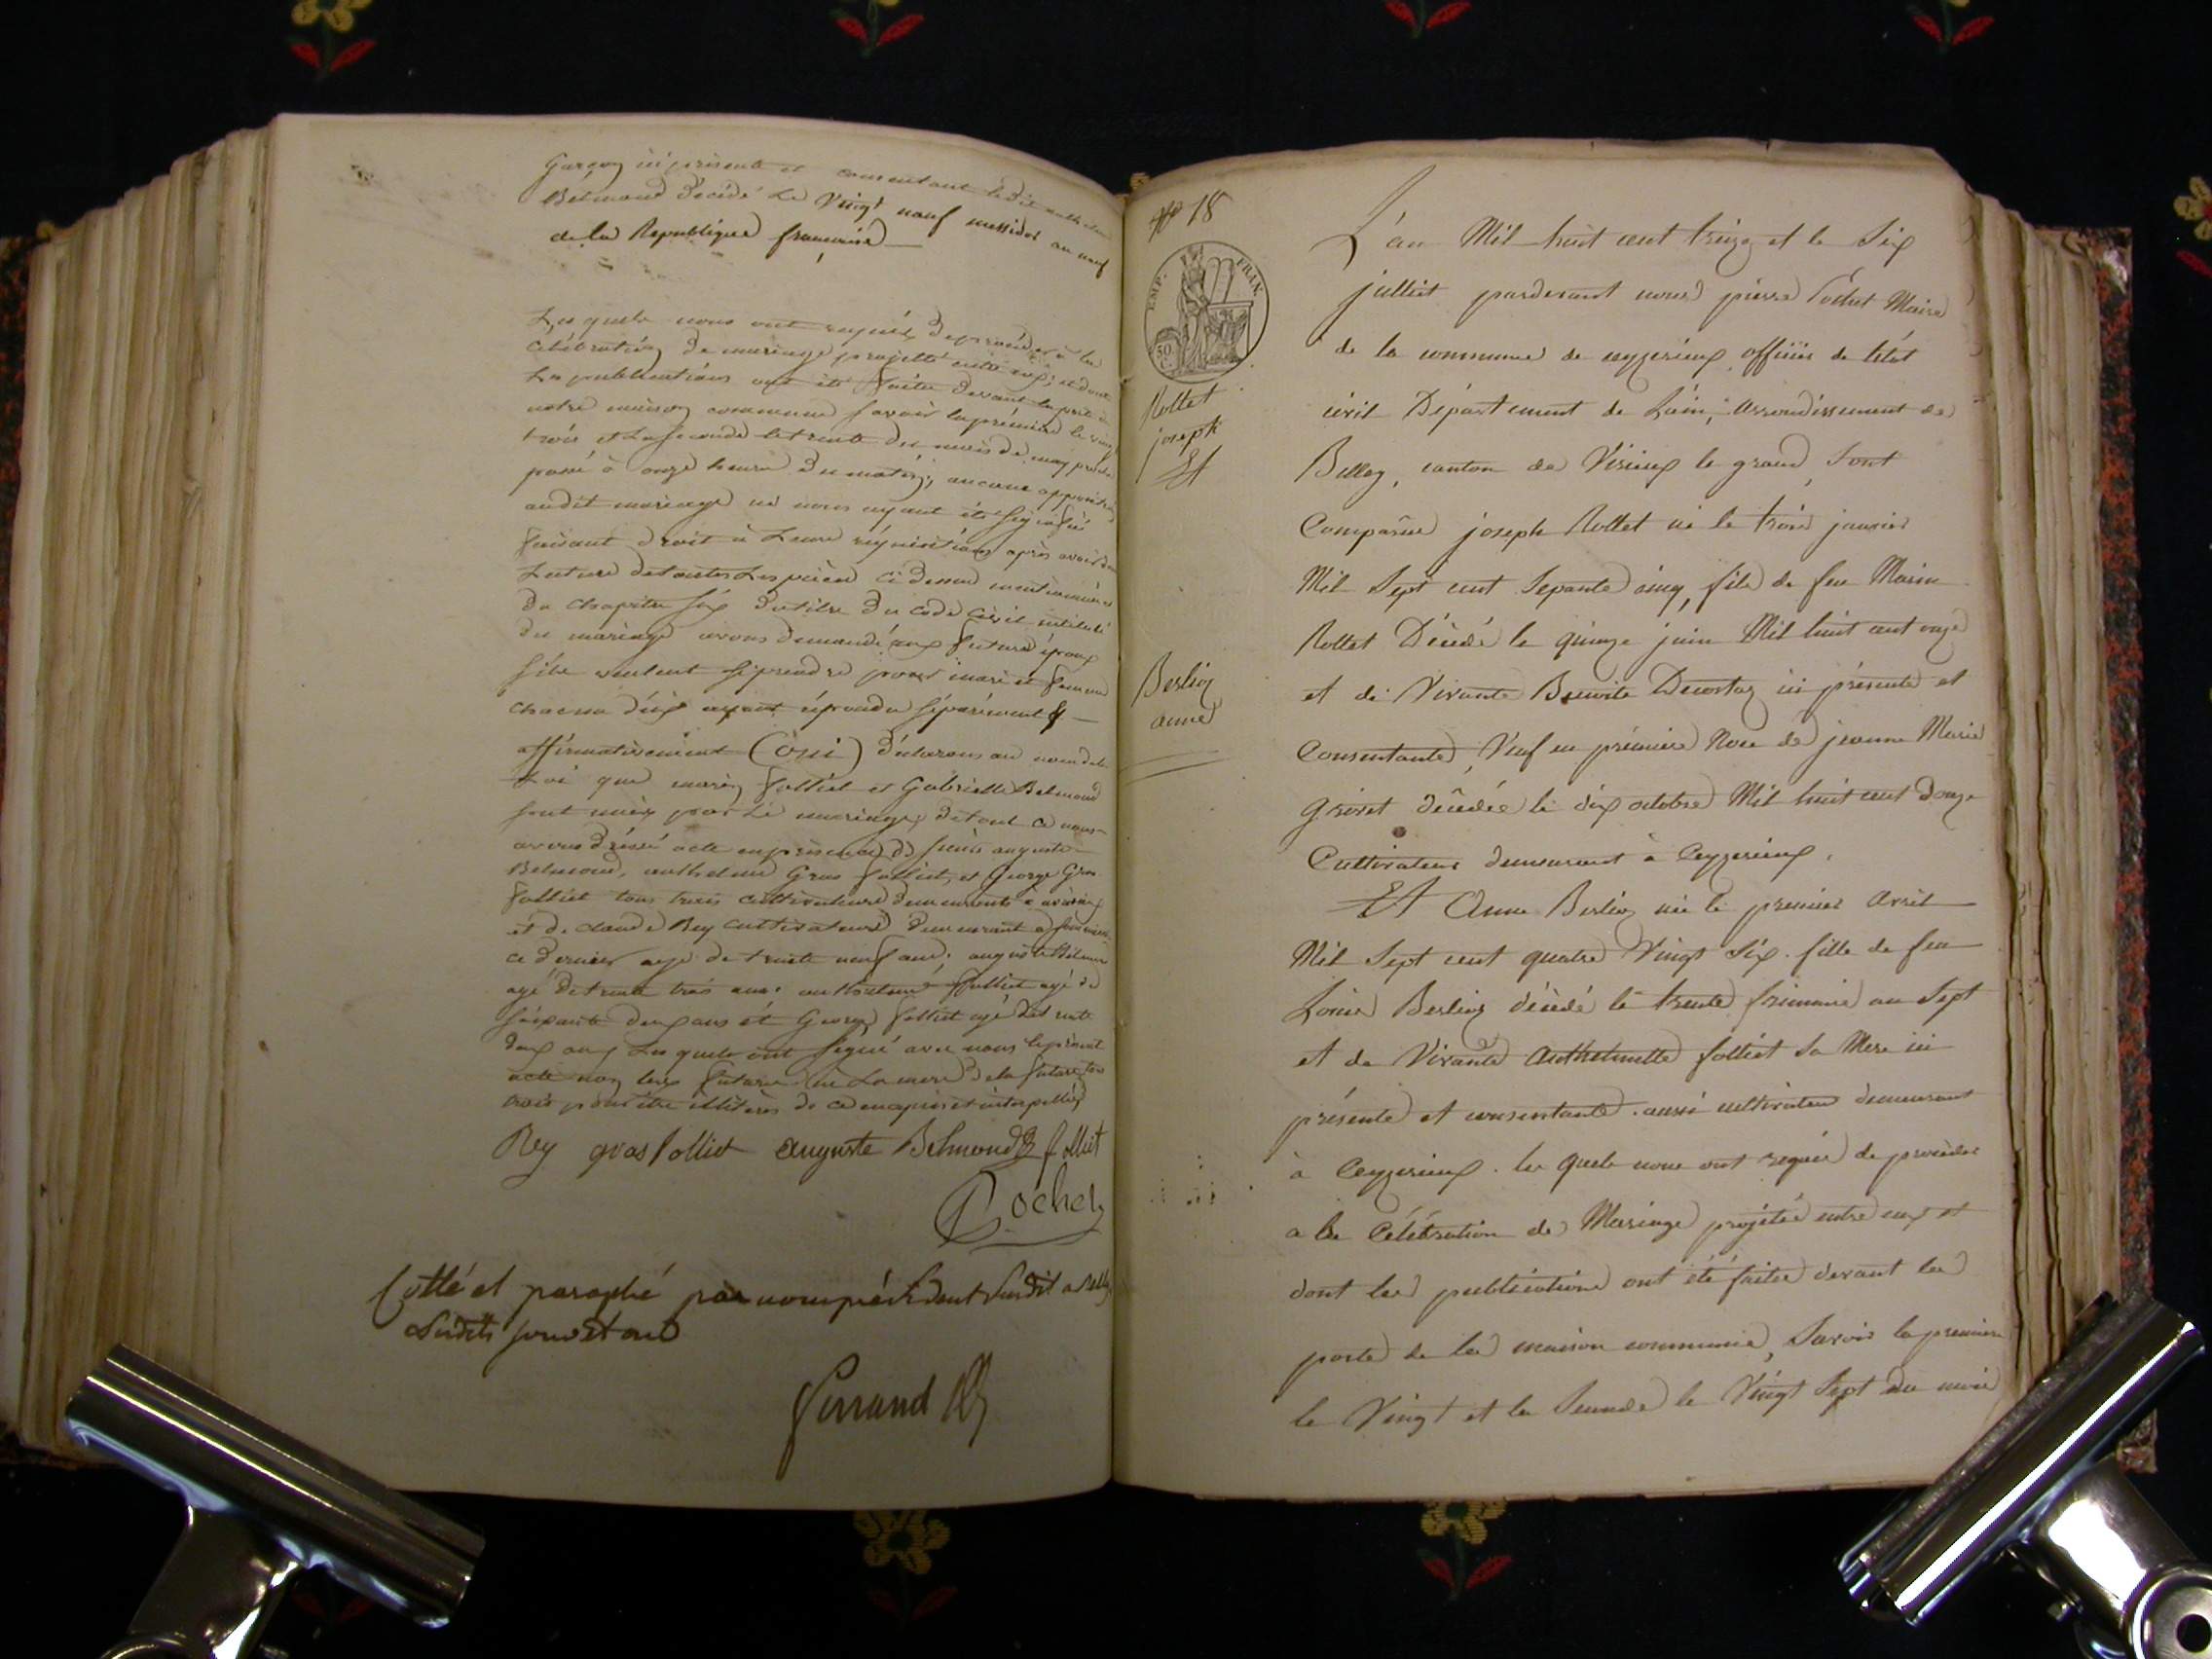 garçon ici présente et consentant ledit
Belmond décédé le Vingt neuf messidor an neuf
de la Republique française
Lesquels nous ont requis de procéder à la
célébration de mariage projetté entre eux, et dont
Les publications ont été faites devant la porte de
notre maison commune savoir la première le vingt
trois et la seconde le trente du mois de may
passé à onze heures du matin; aucune opposition
audit mariage ne nous ayant été signifié
faisant droit à Leurs réquisitions après avoir
Lecture de toutes Les pièces ci dessus mentionnées
du chapitre six du titre du code civil intitulé
du mariage avons demandé aux futurs époux
s'ils veulent se prendre pour mari et femme
chacun d'eux ayant répondu séparément &
affirmativement (oui) déclarons au nom de la
Loi que marin folliet et Gabrielle Belmond
sont unis par Le mariage; de tout ce nous
avons dressé acte en présence de sieurs auguste
Belmond, anthelme Gros folliet, et George Gros
folliet tous trois cultivateurs demeurants à
et de claude Rey cultivateur demeurant à
ce dernier agé de trente neuf ans; auguste Belmond
agé de trente trois ans; anthelme folliet agé de
soixante deux ans et George folliet agé de trente
deux ans Lesquels ont signé avec nous le présent
acte non les futurs ni La mere de la future tous
trois pour être illitérés de ce enquis et interpellés
Rey gros folliet auguste Belmond G folliet
Rochet
Cotté et paraphé par nous président susdit a
susdits jour et an
Ferrand
N° 18
EMP. FRAN.
50 C.
Rollet
joseph
Et
Berlioz
anne
L'an Mil huit cent treize et le Six
julliet pardevant nous pierre Rochet Maire
de la commune de ceyzerieux, officier de l'état
civil Département de L'ain, arrondissement de
Belley, canton de Virieux le grand, sont
Comparus joseph Rollet né le trois janvier
Mil Sept cent Sepante cinq, fils de feu Marin
Rollet Décédé le quinze juin Mil huit cent onze
et de Vivante Benoite Decostaz ici présente et
Consentante, Veuf en première Noce de jeanne Marie
Grivet décédée le dix octobre Mil huit cent douze
Cultivateur demeurant à Ceyzerieux.
Et Anne Berlioz née le premier Avril
Mil Sept cent quatre Vingt Six. fille de feu
Louis Berlioz décédé le trente frimaire an Sept
et de Vivante Anthelmette folliet sa Mere ici
présente et consentante. aussi cultivateur demeurant
à Ceyzerieux. les quels nous ont requis de procéder
a la Célébration de Mariage projetée entre eux et
dont les publications ont été faites devant la
porte de la maison commune, Savoir la premiere
le Vingt et la Seconde le Vingt Sept du mois